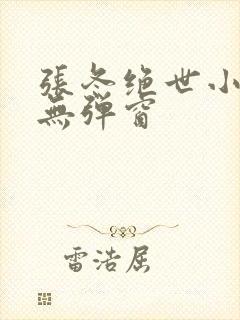 張冬绝世小
無弹窗
雷浩屈